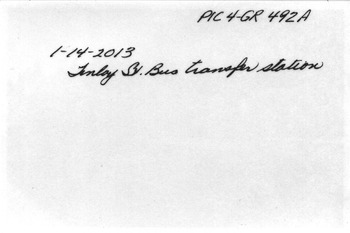 PIC 4-GR 492A
1-14-2013
Finlay St. Bus transfer station